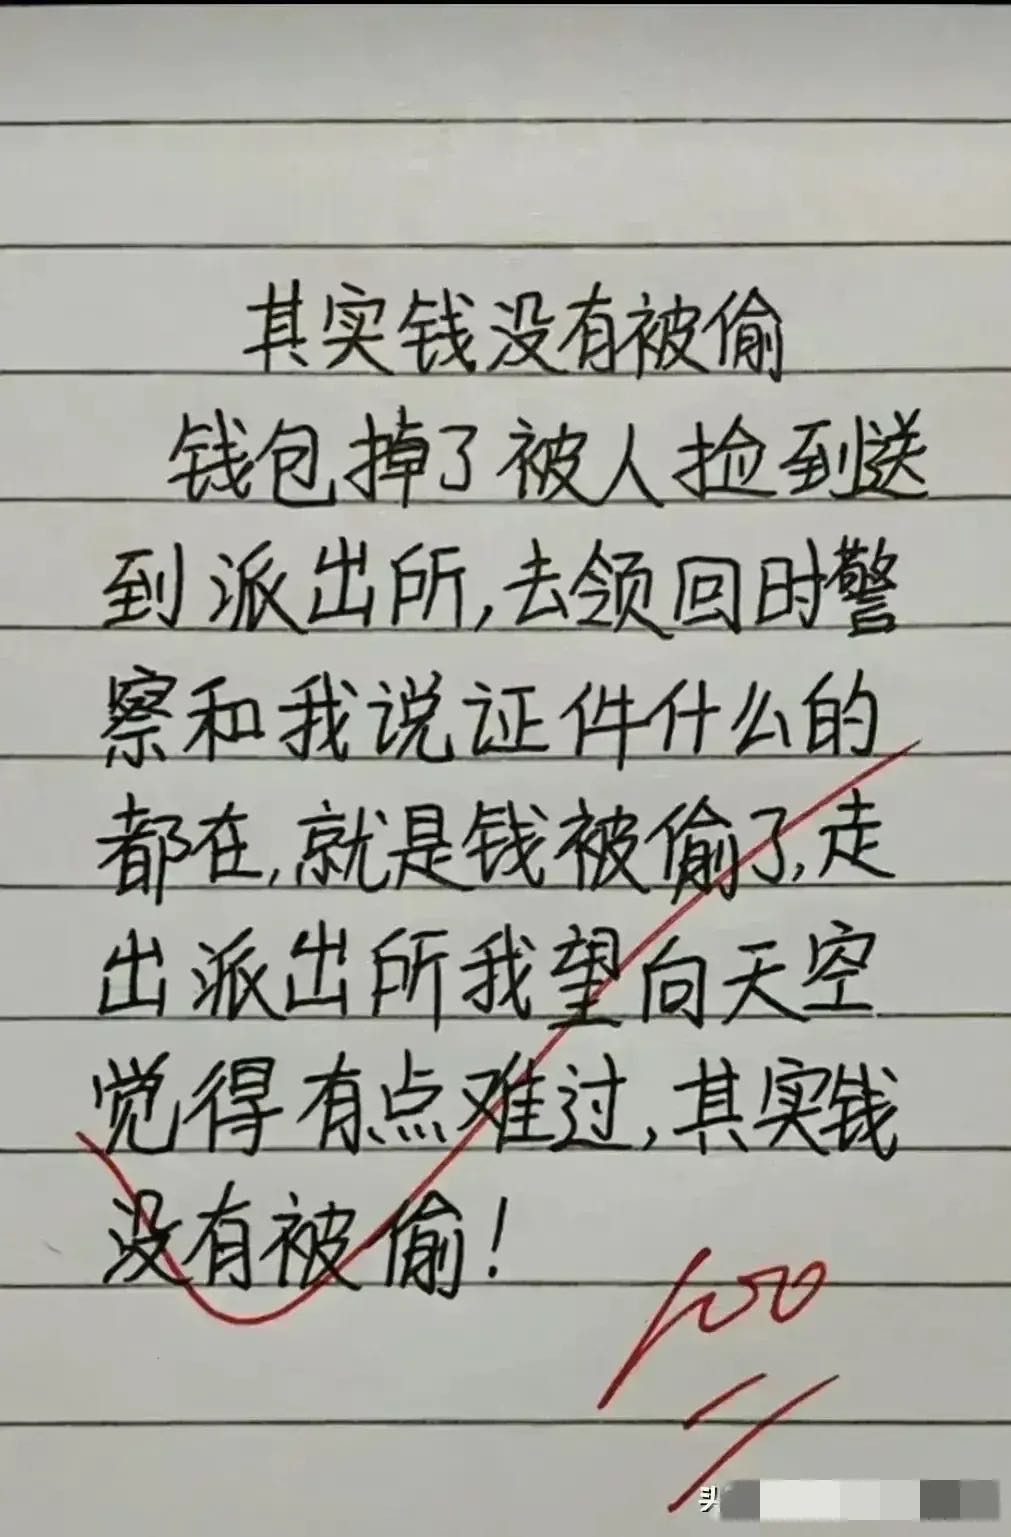 其实钱没有被偷
钱包掉了被人捡到送
到派出所,去领回时警
察和我说证件什么的
都在,就是钱被偷了,走
出派出所我望向天空
觉得有点难过,其实钱
没有被偷!
100
头